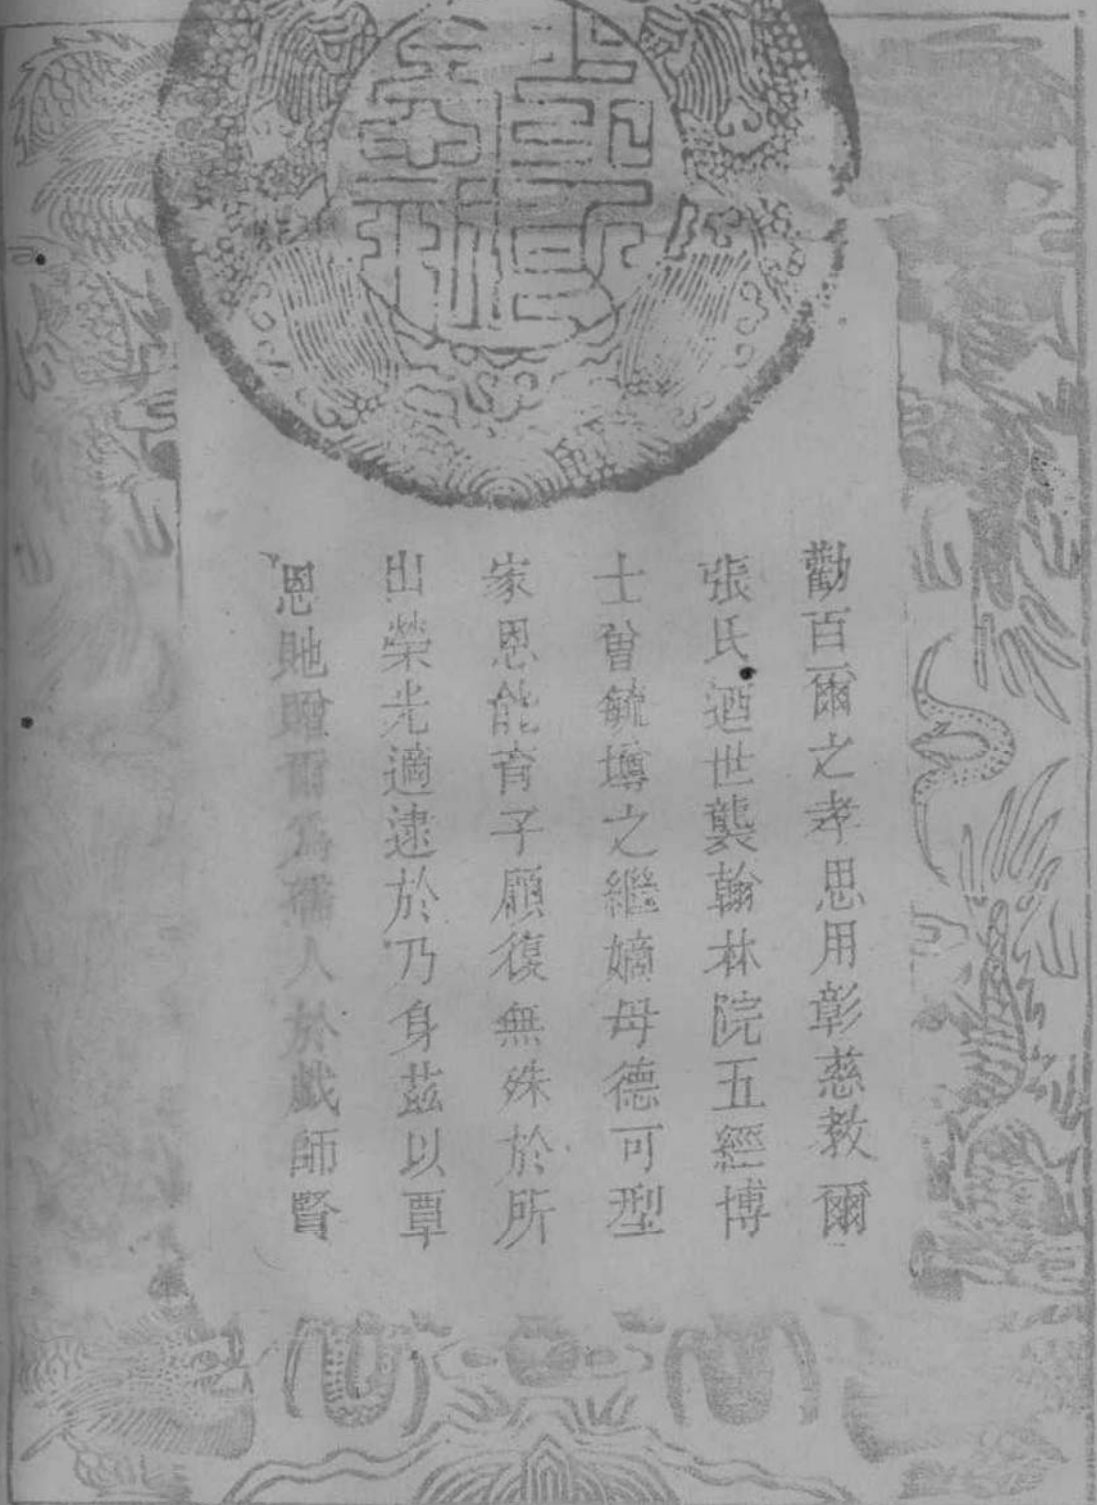 勸百爾之孝思用彰慈教爾
張氏迺世襲翰林院五經博
士曾毓墫之繼嫡母德可型
家恩能育子顧復無殊於所
出榮光適逮於乃身茲以覃
恩貤贈爾為孺人於戲師賢